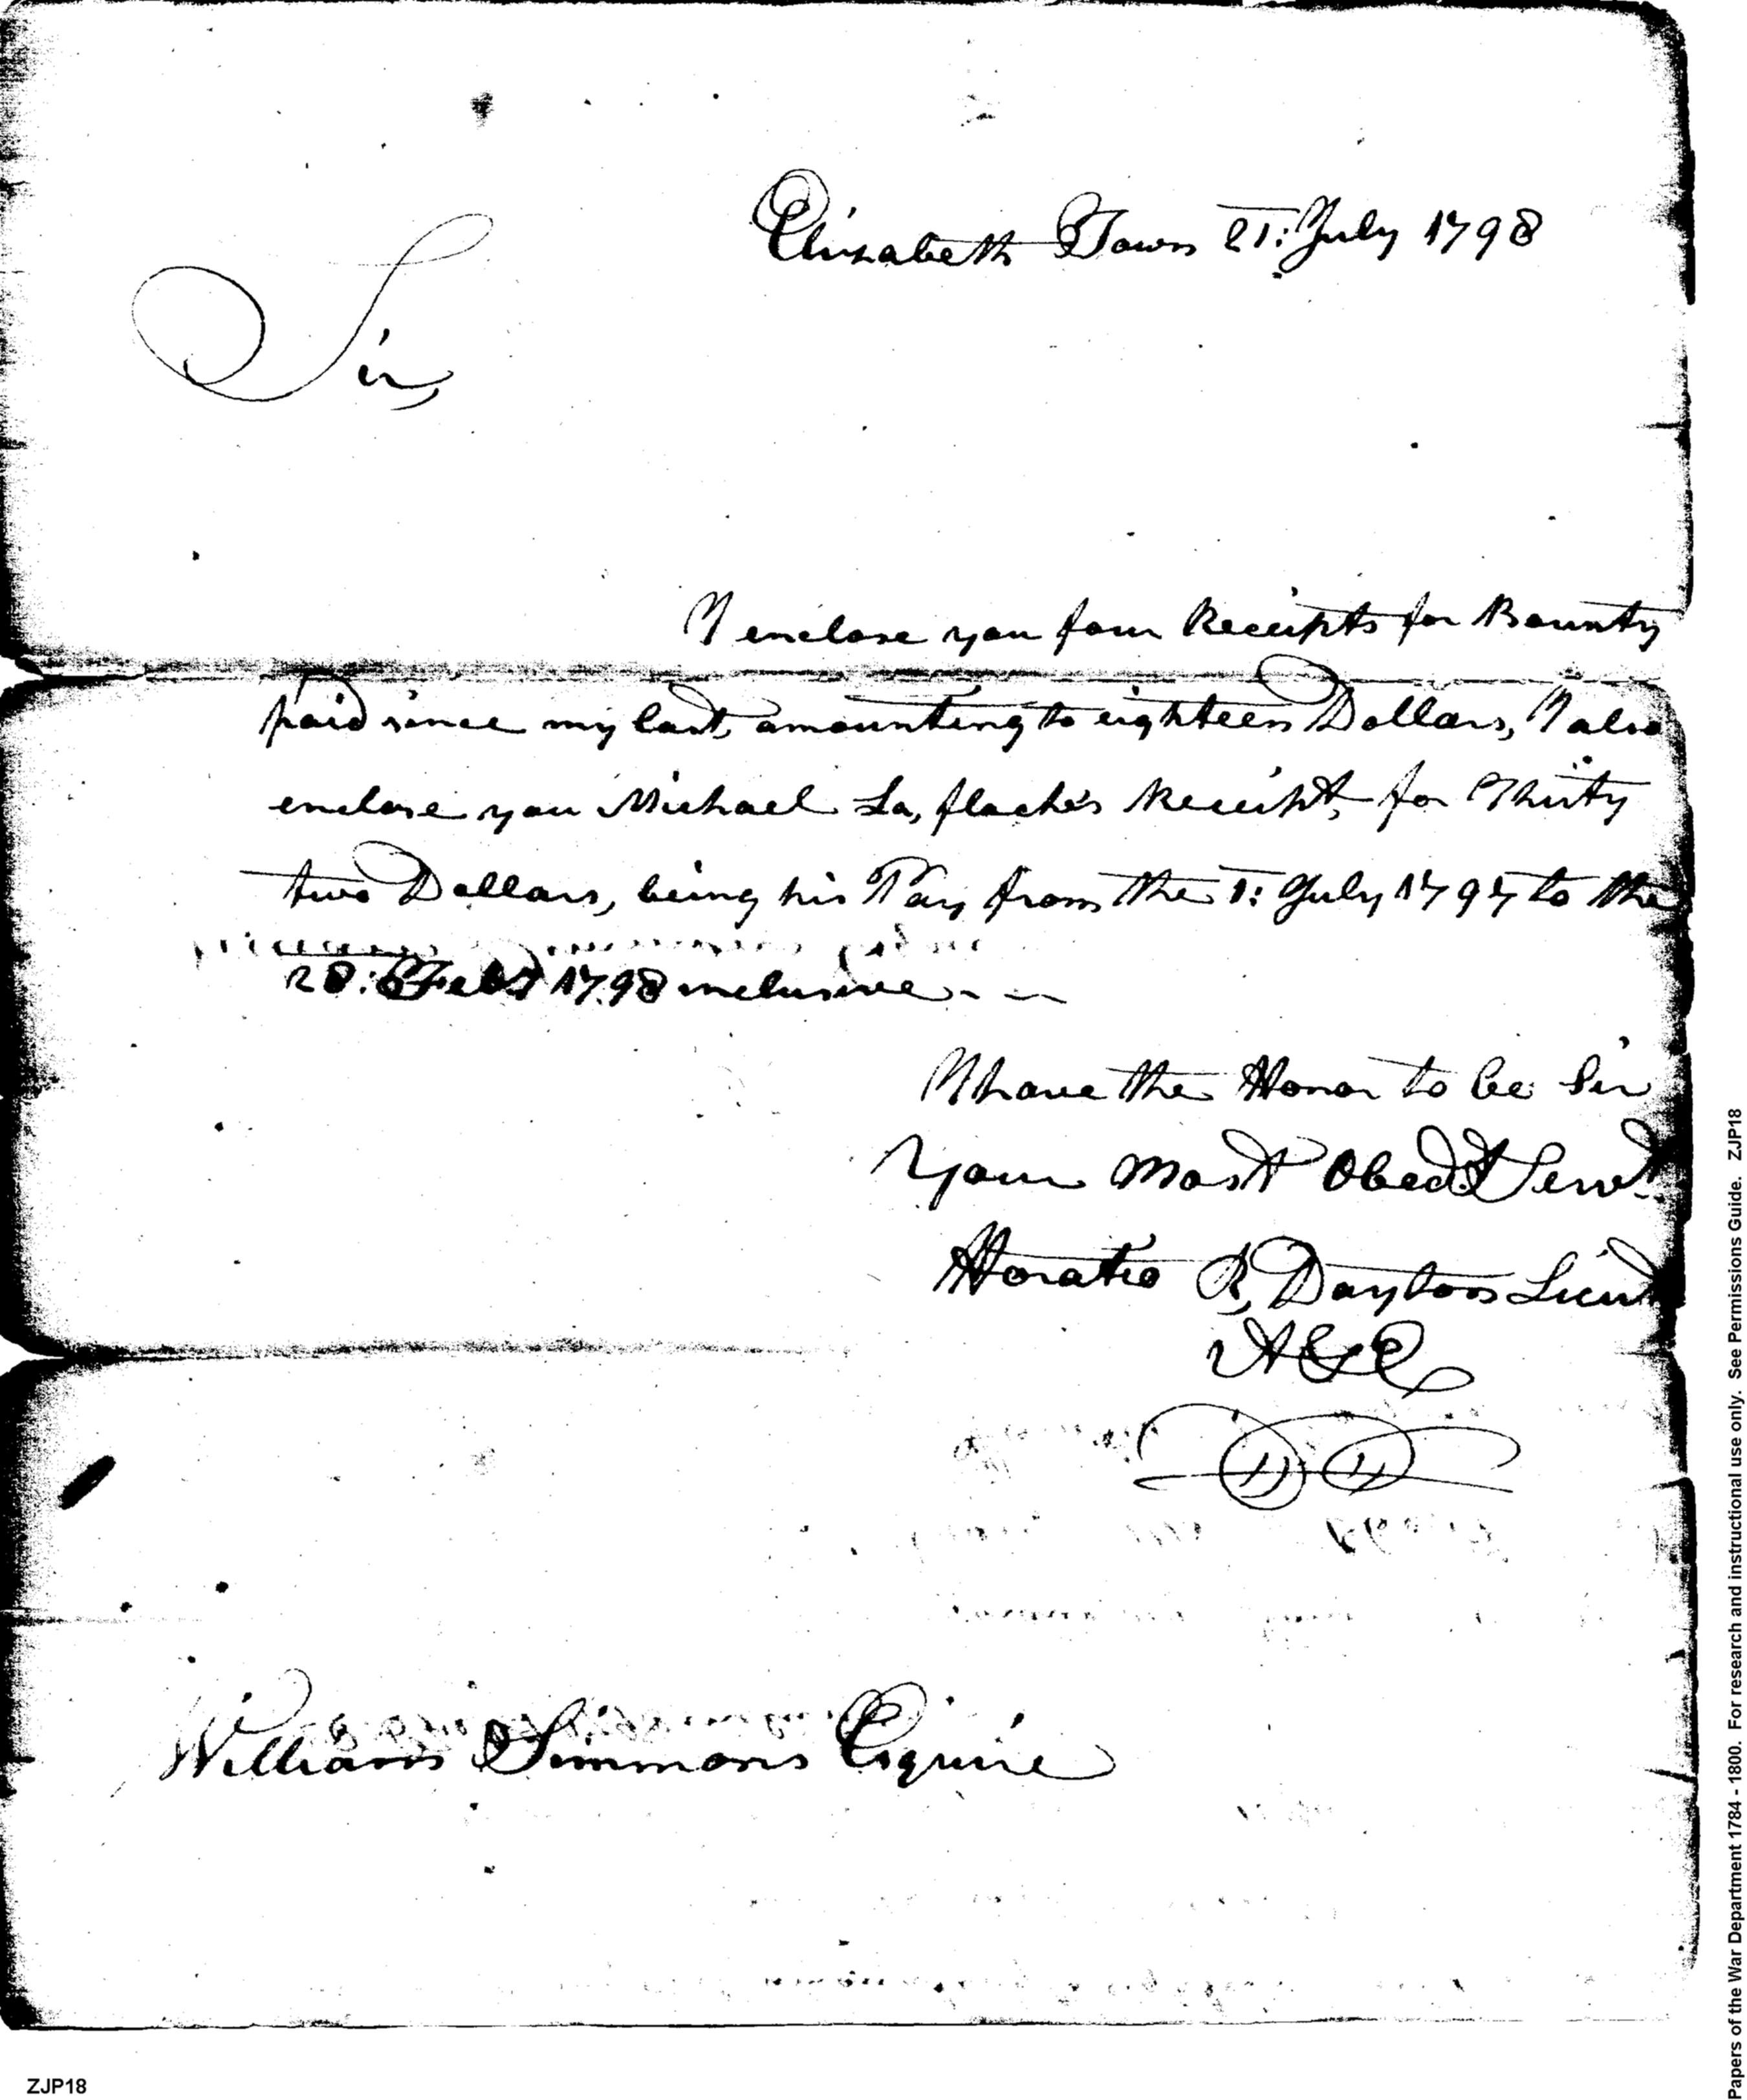 Elizabeth Town 21: July 1798
Sir,
I enclose you four Receipts for Bounty
paid since my last, amounting to eighteen Dollars, I also
enclose you Michael La, flache's Receipt, for Thirty
two Dollars, being his Pay from the 1: July 1797 to the
28: Feby 1798 inclusive - -
I have the Honor to be Sir
Your most Obedt Servt
Horatio R, Dayton Lieut
A&E
William Simmons Esquire
ZJP18
Papers of the War Department 1784 - 1800. For research and instructional use only. See Permissions Guide. ZJP18